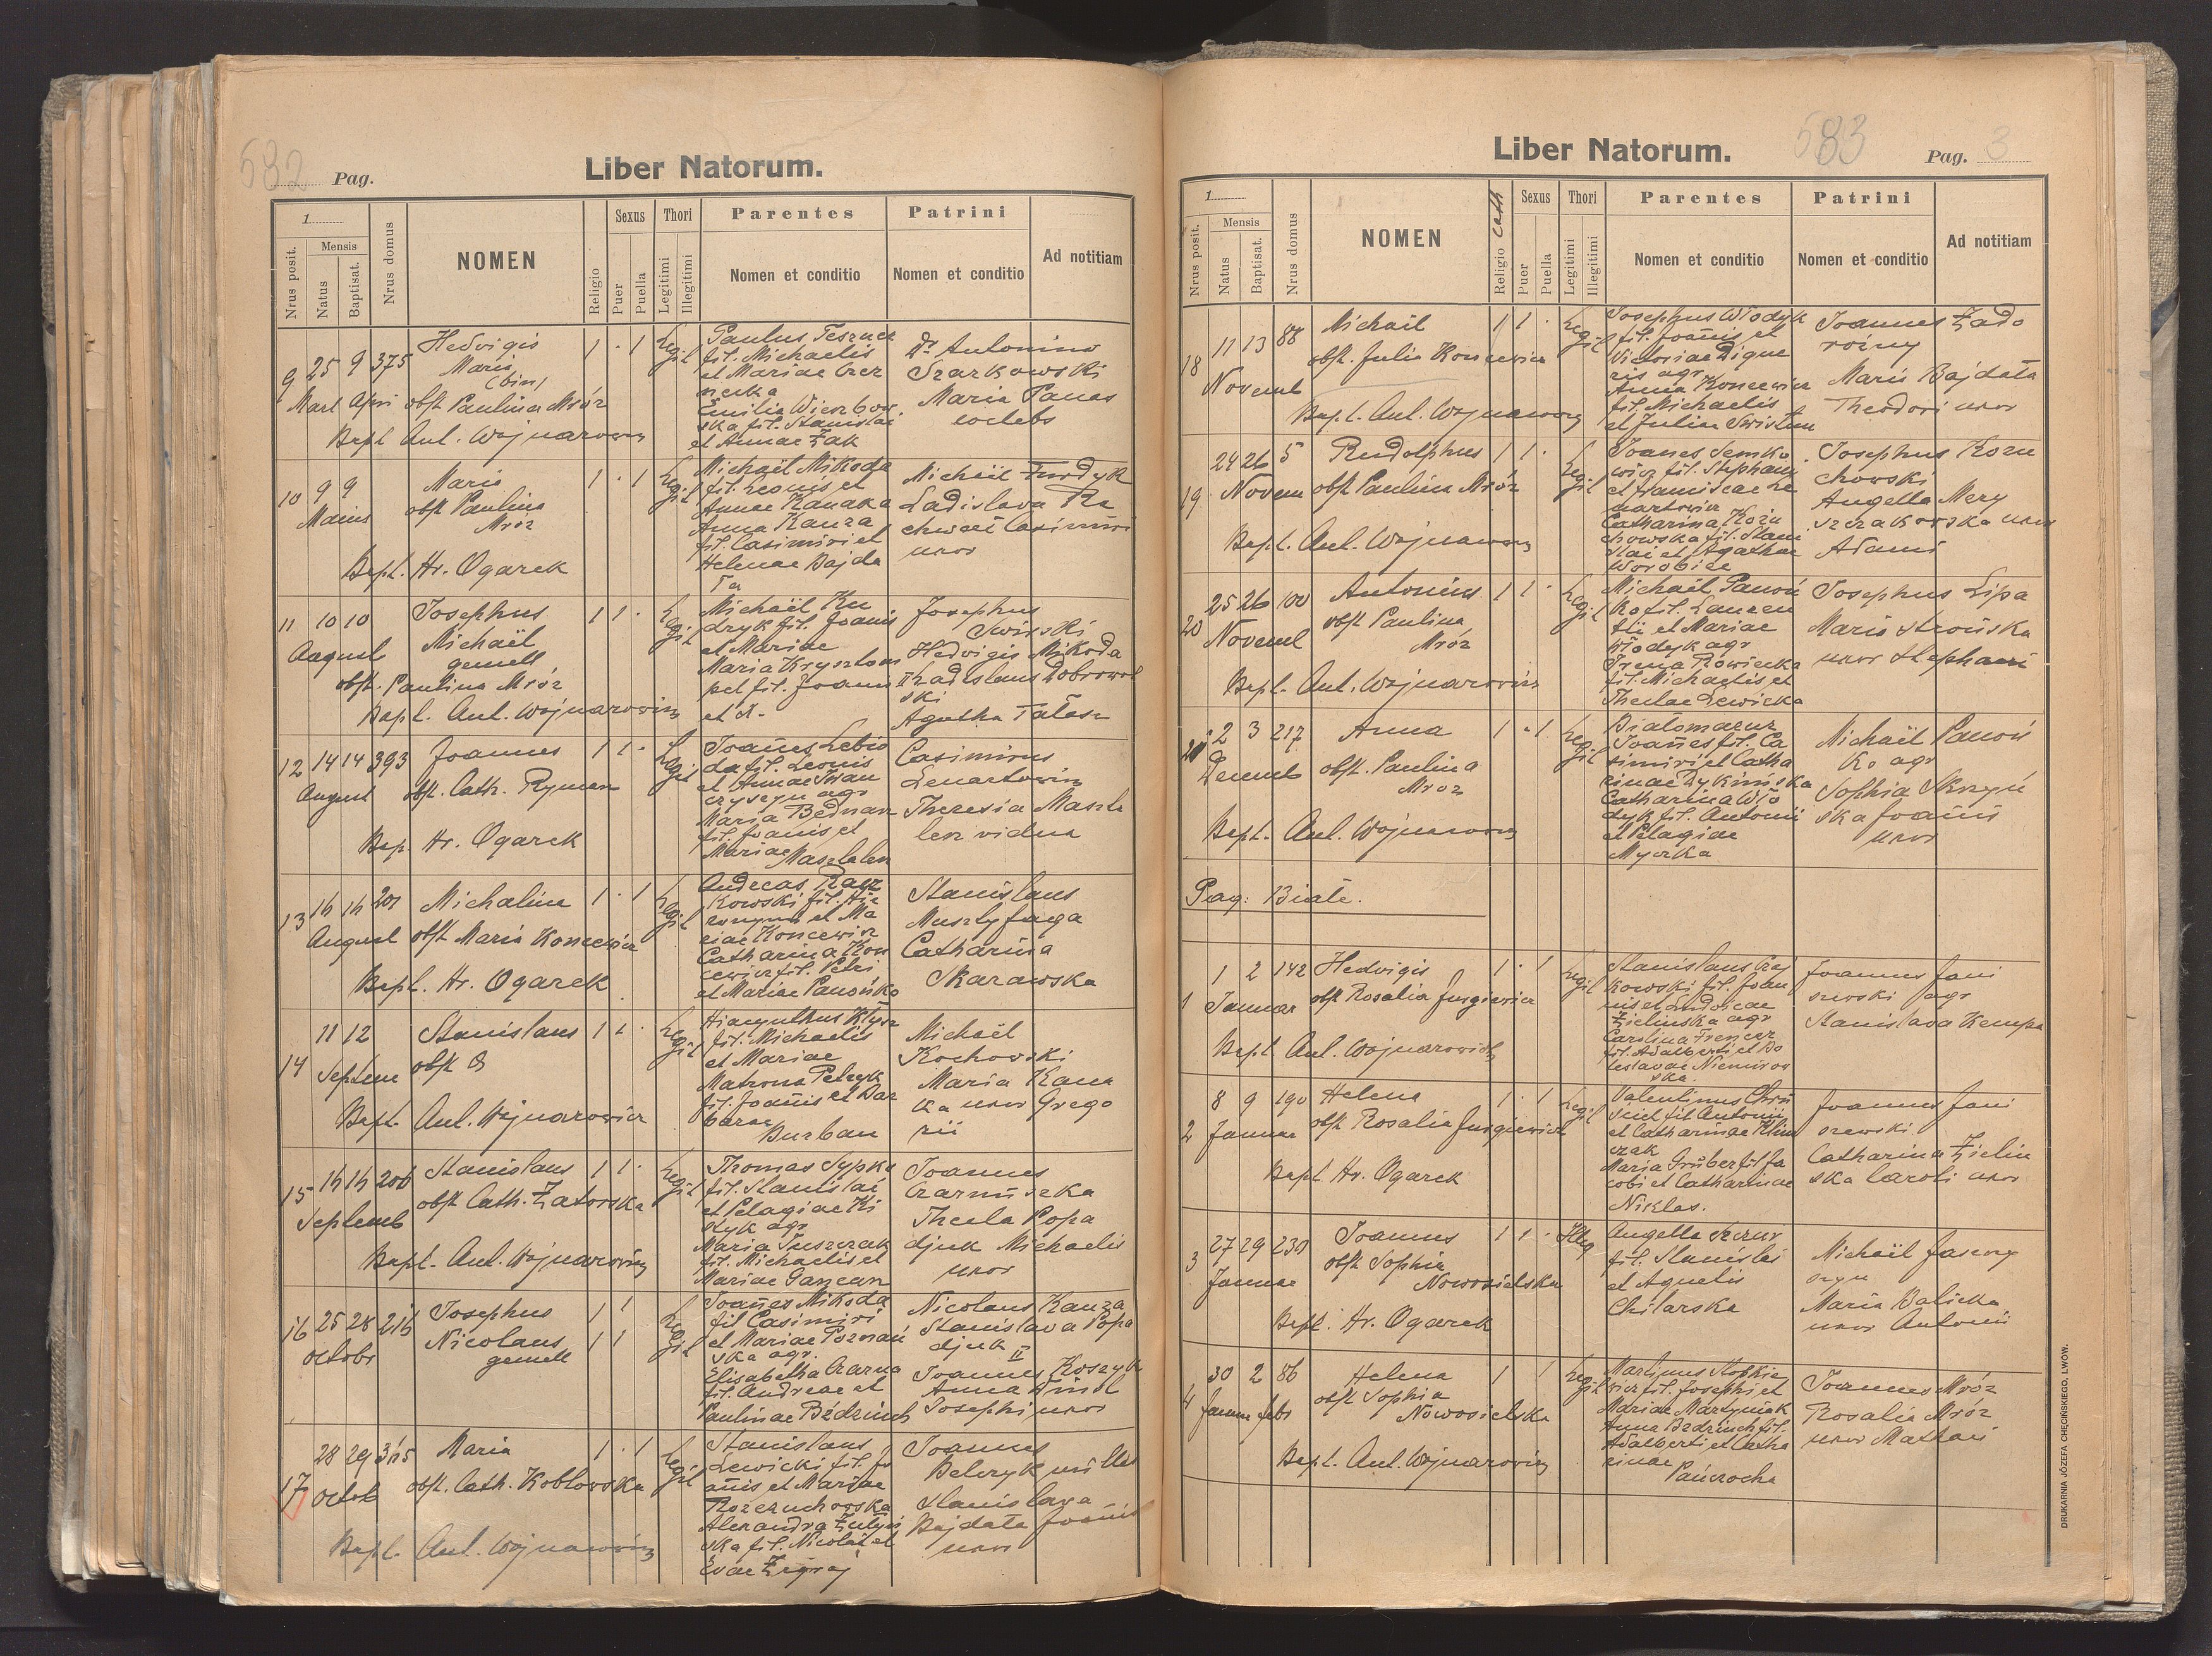 582 Pag.
Liber Natorum.
1
Nrus posit.
Mensis
Natus
Baptisat.
Nrus domus
NOMEN
Religio
Sexus
Puer
Puella
Thori
Legitimi
Illegitimi
Parentes
Nomen et conditio
Patrini
Nomen et conditio
Ad notitiam
9 25 9 375
Mart Apri
Hedvigis
Maria
(bin)
obst Paulina Mróz
Bapt Ant. Wojnarowicz
1 · 1 Legit
fil. Michaelis
et Mariae
Emilia
ska fil. Stanislai
et Annae Żak
Dr Antonino
Szarkowski
Maria Panas
coelebs
10 9 9
Maius
Maria
obst Paulina
Mróz
Bapt. Hr. Ogarek
1 · 1 Legit
Michaël Mikoda
fil. Leonis et
Annae
Anna Kanza
fil. Casimiri et
Helenae Bajda
ta
Michaël Furdyk
Ladislava Ra
chwał Casimiri
uxor
11 10 10
August
Josephus
Michaël
gemell
obst. Paulina Mróz
Bapt. Ant. Wojnarowicz
1 1 · Legit
Michaël Ku
dryk fil. Joanis
et Mariae
Maria Krysztom
pel fil. Joanis
et A.
Josephus
Swirski
Hedvigis Mikoda
II Ladislaus Dobrowol
ski
Agatha
12 14 14 393
August
Joannes
obst. Cath. Ryman
Bap. Hr. Ogarek
1 1 · Legit
Joañes Lebio
da fil. Leonis
et Annae Iwan
czyszyn agr
Maria Bednarz
fil. Joanis et
Mariae Masztalerz
Casimirus
Lenartowicz
Theresia Maszta
lerz vidua
13 16 16 201
August
Michalina
obst Maria Koncewicz
Bapt. Hr. Ogarek
1 · 1 Legit
Andreas Racz
kowski fil. Hie
ronymi et Ma
riae Koncewicz
Catharina Kon
cewicz fil. Petri
et Mariae Panońko
Stanislaus
Musztyfaga
Catharina
Skarawska
14 11 12
Septem
Stanislaus
obst
Bapt. Ant. Wojnarowicz
1 1 · Legit
Hiacynthus
fil. Michaelis
et Mariae
Matrona Petryk
fil. Joañis et Bar
barae
Burban
Michaël
Kochowski
Maria Kana
ka uxor Grego
rii
15 16 16 206
Septemb
Stanislaus
obst Cath. Zatorska
Bapt. Ant. Wojnarowicz
1 1 · Legit
Thomas Sypka
fil. Stanislai
et Pelagiae Ki
styk agr
Maria Tuszczak
fil. Michaelis et
Mariae
Joannes
Czarnuszka
Thecla Popa
djuk Michaelis
uxor
16 25 28 216
octobr
Josephus 1 1
Nicolaus 1 1
gemell
Legit
Joañes Mikoda
fil Casimiri
et Mariae Poznań
ska agr.
Elisabetha Czarna
fil. Andreae et
Paulinae
Nicolaus Kanza
Stanislava Popa
djuk II
Joannes Koszyk
Anna
Josephi uxor
17 28 29 315
octob
Maria
obst. Cath. Kobłowska
Bapt. Ant. Wojnarowicz
1 · 1 Legit
Stanislaus
Lewicki fil. Jo
añis et Mariae
Alexandra
ska fil. Nicolai et
Evae
Joannes
Belczyk miles
Stanislava
Bajdała Joañis
uxor
583
Liber Natorum.
Pag. 3
1
Nrus posit.
Mensis
Natus
Baptisat.
Nrus domus
NOMEN
Religio cath
Sexus
Puer
Puella
Thori
Legitimi
Illegitimi
Parentes
Nomen et conditio
Patrini
Nomen et conditio
Ad notitiam
18 11 13 88
Novemb
Michaël
obst. Julia Koncewicz
Bapt. Ant. Wojnarowicz
1 1 · Legit
Josephus Włodyk
fil. Joañis et
Victoriae
ris agr
Anna Koncewicz
fil. Michaelis
et Juliae
Joannes Zado
rożny
Maria Bajdała
Theodori uxor
19 24 26 5
Novem
Rudolphus
obst Paulina Mróz
Bapt. Ant. Wojnarowicz
1 1 · Legit
Joanes Semko
wicz fil. Stephani
et Franciscae Le
nartowicz
Catharina Kożu
chowska fil. Stani
slai et Agathae
Worobiec
Josephus Kozu
chowski
Angella Mery
szczakowska uxor
Adami
20 25 26 100
Novemb
Antonius
obst Paulina
Mróz
Bapt. Ant. Wojnarowicz
1 1 · Legit
Michaël Panoń
ko fil. Lauren
tii et Mariae
Włodyk agr
Irena Rowicka
fil. Michaelis et
Theclae Lewicka
Josephus Lipa
Maria Strońska
uxor Stephani
21 2 3 217
Decemb
Anna
obst. Paulina
Mróz
Bapt. Ant. Wojnarowicz
1 · 1 Legit
Białomazur
Joañes fil. Ca
simiri et Catha
rinae
Catharina Wło
dyk fil. Antonii
et Pelagiae
Myczka
Michaël Panoń
ko agr
Sophia Skrzyń
ska Joañis
uxor
Pag: Białe.
1 1 2 142
Januar
Hedvigis
obst Rosalia Jurgiewicz
Bapt Ant. Wojnarowicz
1 · 1 Legit
Stanislaus Czaj
kowski fil. Joan
nis et Ludvicae
Zielinska agr
Carolina
fil. Adalberti et Bo
leslavae Niemirow
ska.
Joannes Jani
szewski agr
Stanislava Kempa
2 8 9 190
Januar
Helena
obst Rosalia Jurgiewicz
Bapt Hr. Ogarek
1 · 1 Legit
Valentinus
fil Antonii
et Catharinae Klim
czak
Maria Grüber fil Ja
cobi et Catharinae
Niklas.
Joannes Jani
szewski
Catharina Zielin
ska Caroli uxor
3 27 29 230
Januar
Joannes
obst Sophia
Nowosielska
Bapt. Hr. Ogarek
1 1 · Illeg
Angella Szczur
fil. Stanislai
et Agnetis
Chilarska
Michaël Jaseny
szyn
Maria Balicka
uxor Antonii
4 30 2 86
Januar febr
Helena
obst Sophia
Nowosielska
Bapt. Ant. Wojnarowicz
1 1 Legit
Martinus
fil. Josephi et
Mariae Martyniak
Anna
Adalberti et Catha
rinae
Joannes Mróz
Rosalia Mróz
uxor
DRUKARNIA JÓZEFA CHĘCIŃSKIEGO, LWÓW.